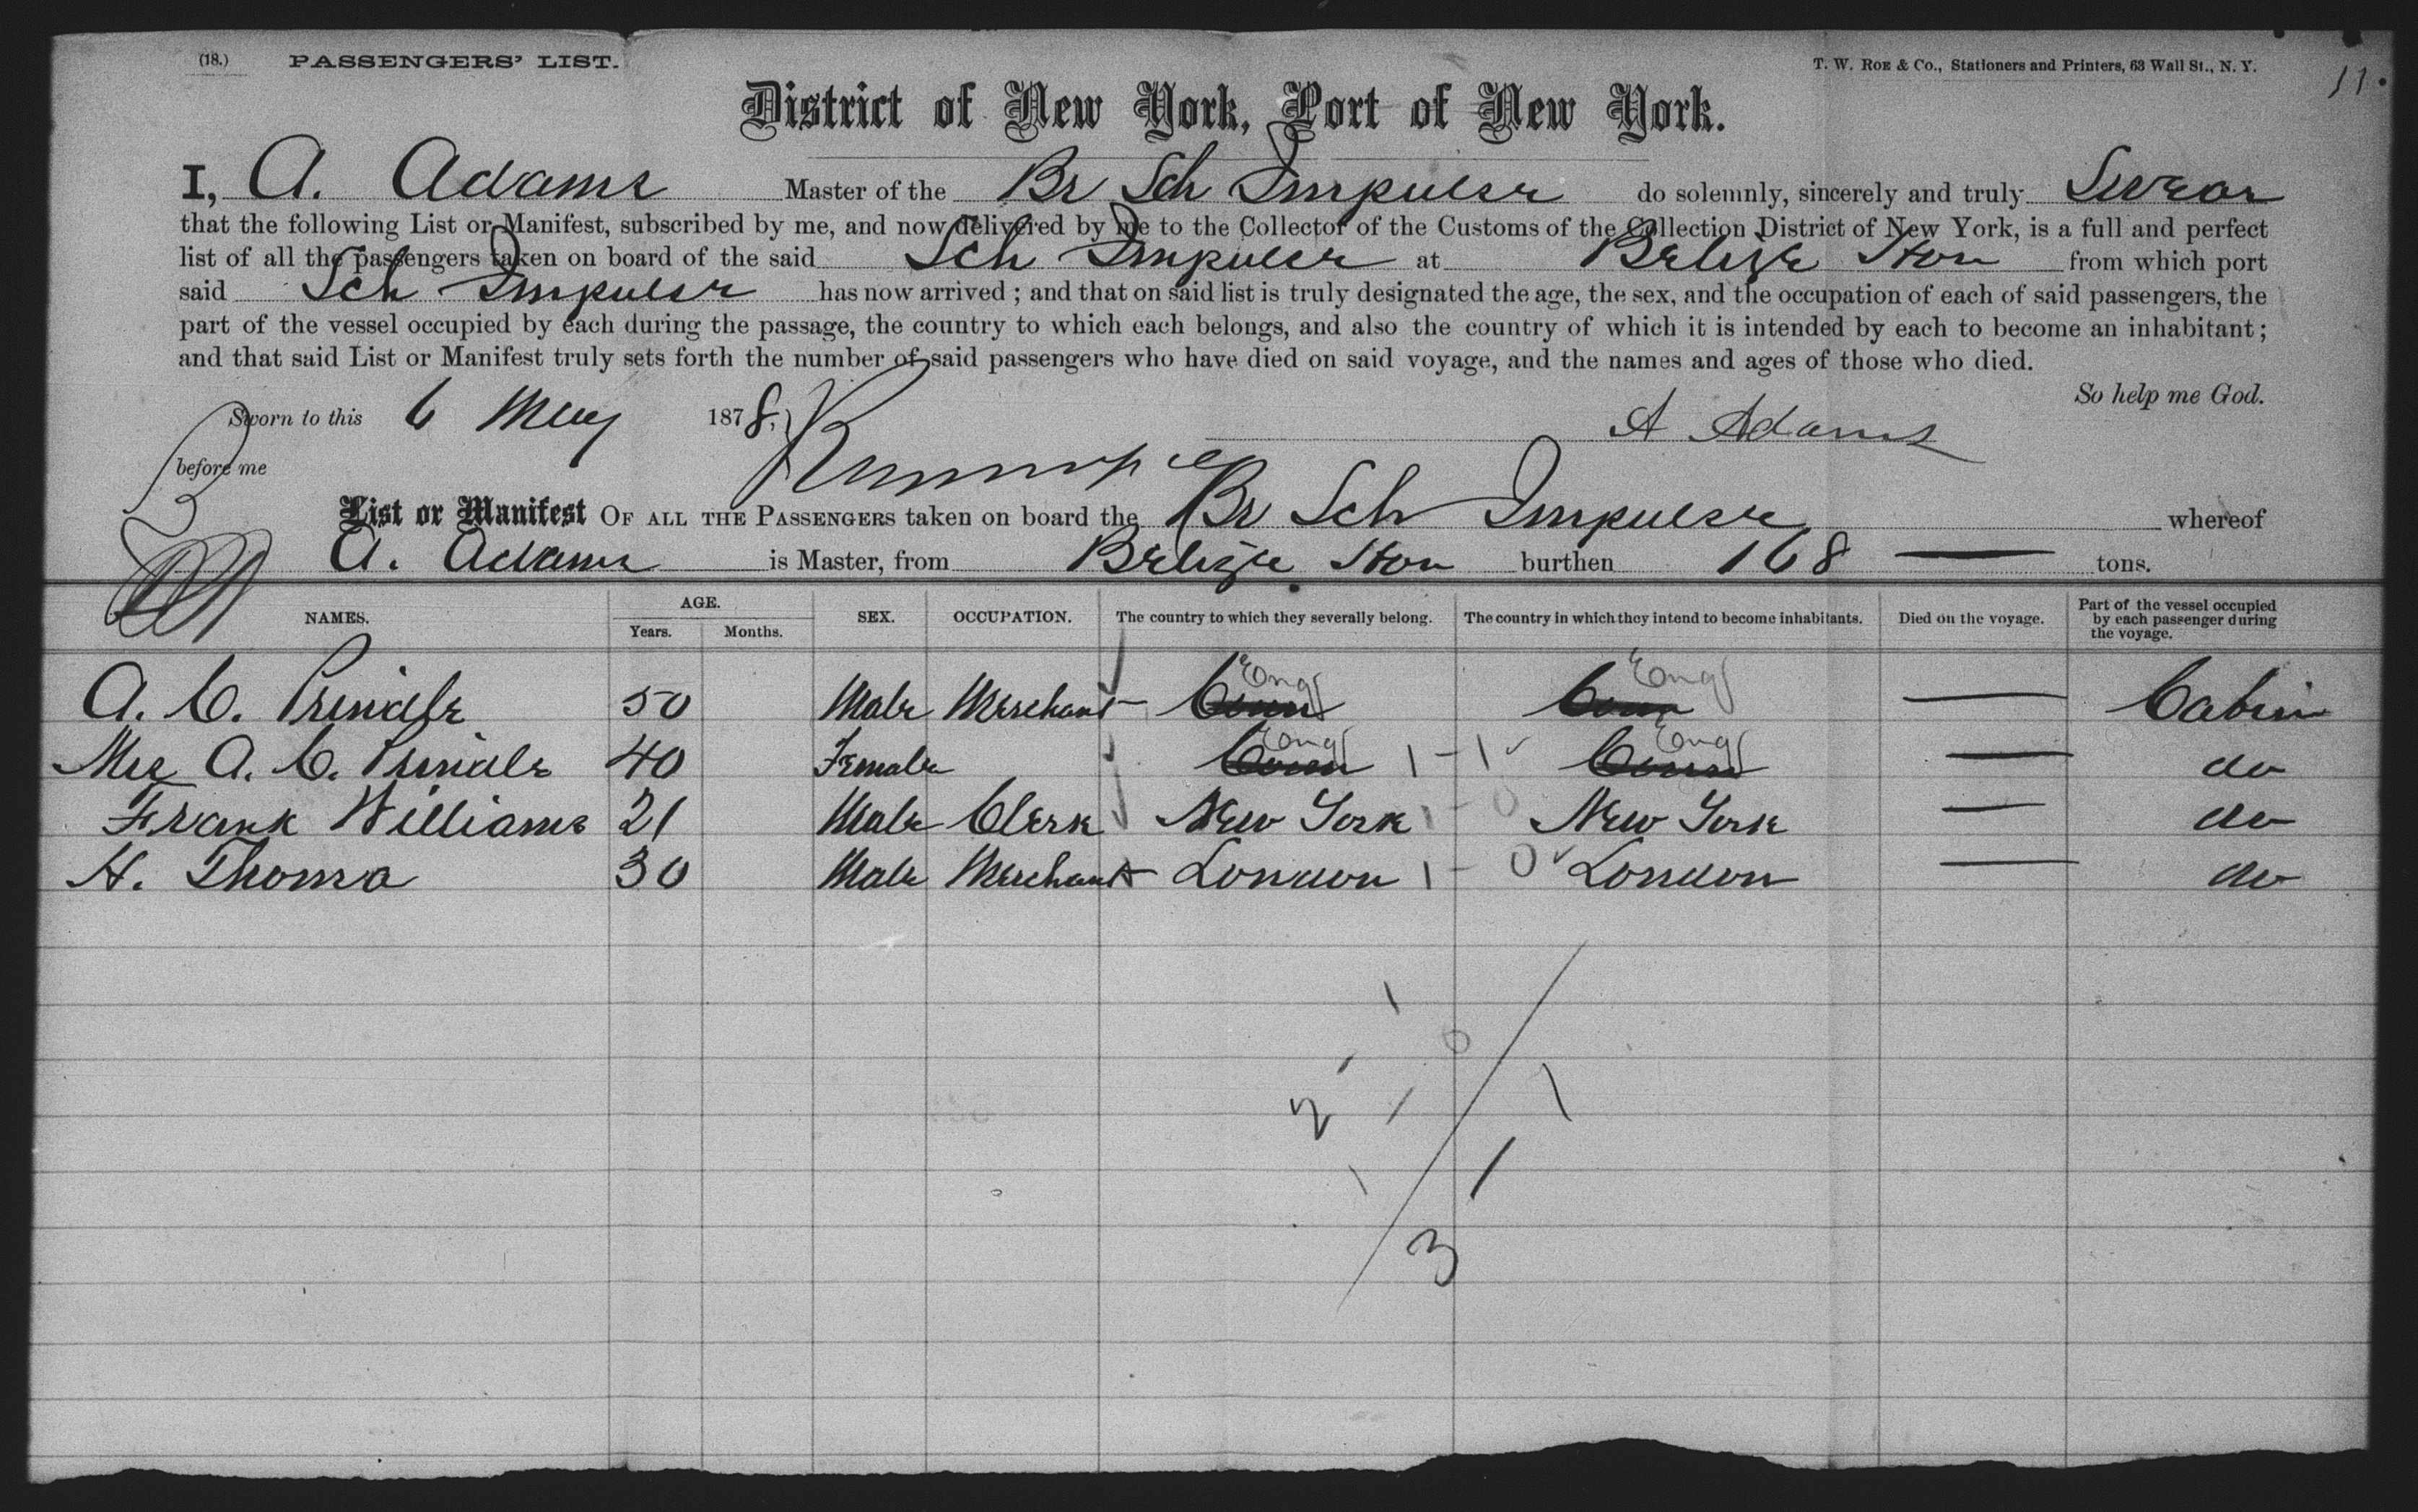 (18.) PASSENGERS' LIST. T. W. ROE & Co., Stationers and Printers, 63 Wall St., N. Y. 11.
District of New York, Port of New York.
I, A. Adams Master of the Br Sch Impulse do solemnly, sincerely and truly Swear
that the following List or Manifest, subscribed by me, and now delivered by me to the Collector of the Customs of the Collection District of New York, is a full and perfect
list of all the passengers taken on board of the said Sch Impulse at Belize Hon from which port
said Sch Impulse has now arrived ; and that on said list is truly designated the age, the sex, and the occupation of each of said passengers, the
part of the vessel occupied by each during the passage, the country to which each belongs, and also the country of which it is intended by each to become an inhabitant ;
and that said List or Manifest truly sets forth the number of said passengers who have died on said voyage, and the names and ages of those who died.
So help me God.
Sworn to this 6 May 1878, A Adams
before me
List or Manifest OF ALL THE PASSENGERS taken on board the Br Sch Impulse whereof
A. Adams is Master, from Belize Hon burthen 168 tons.
NAMES. AGE. Years. Months. SEX. OCCUPATION. The country to which they severally belong. The country in which they intend to become inhabitants. Died on the voyage. Part of the vessel occupied by each passenger during the voyage.
A. C. 50 Male Merchant Eng Eng — Cabin
A. C. 40 Female Eng 1 - 1 Eng — do
Frank Williams 21 Male Clerk New York 1 - 0 New York — do
H. Thoma 30 Male Merchant London 1 - 0 London — do
1
0
2 1 1
1 1
3